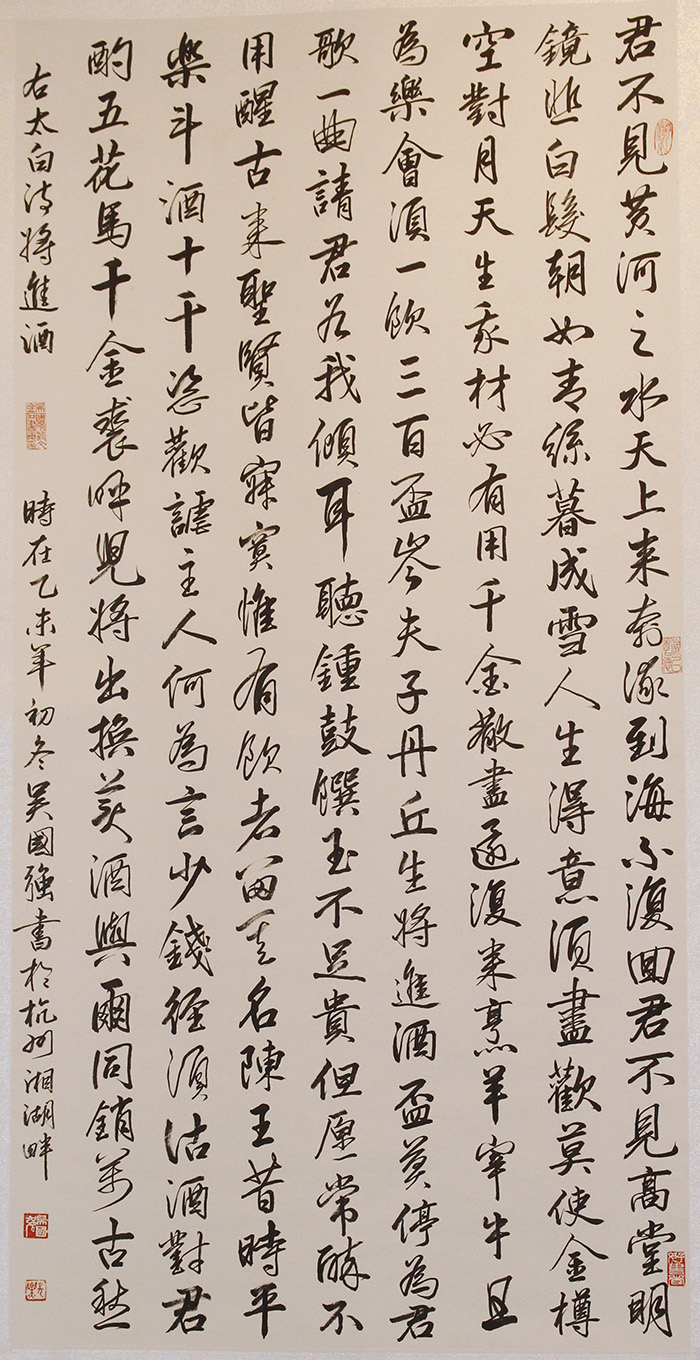 君不見黃河之水天上來奔流到海不復回君不見高堂明
鏡悲白髮朝如青絲暮成雪人生得意須盡歡莫使金樽
空對月天生我材必有用千金散盡還復來烹羊宰牛且
為樂會須一飲三百盃岑夫子丹丘生將進酒盃莫停為君
歌一曲請君為我傾耳聽鍾鼓饌玉不足貴但愿常醉不
用醒古來聖賢皆寂寞惟有飲者留其名陳王昔時平
樂斗酒十千恣歡謔主人何為言少錢徑須沽酒對君
酌五花馬千金裘呼兒將出換美酒與爾同銷萬古愁
右太白詩將進酒
時在乙未年初冬吳國強書於杭州湘湖畔